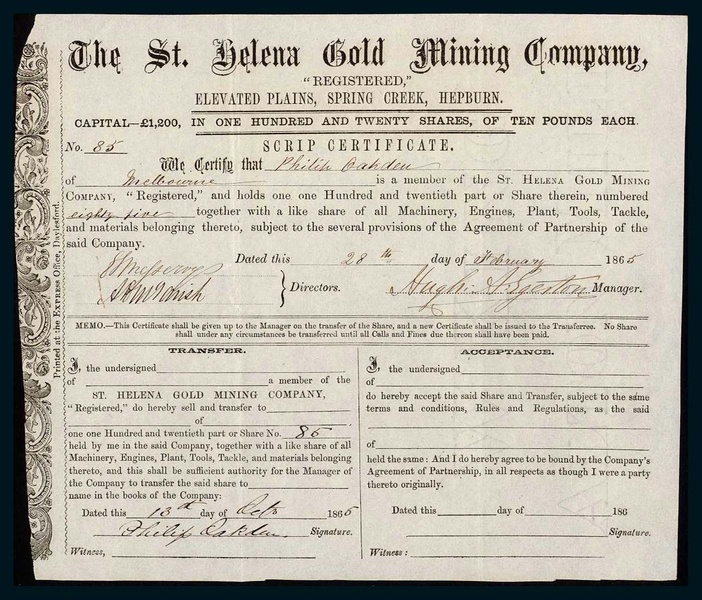 The St. Helena Gold Mining Company,
"REGISTERED,"
ELEVATED PLAINS, SPRING CREEK, HEPBURN.
CAPITAL—£1,200, IN ONE HUNDRED AND TWENTY SHARES, OF TEN POUNDS EACH.
No. 85 SCRIP CERTIFICATE.
We Certify that Philip Oakden
of Melbourne is a member of the ST. HELENA GOLD MINING
COMPANY, "Registered," and holds one one Hundred and twentieth part or Share therein, numbered
eighty five together with a like share of all Machinery, Engines, Plant, Tools, Tackle,
and materials belonging thereto, subject to the several provisions of the Agreement of Partnership of the
said Company.
Dated this 28th day of February 1865
Directors. Hugh Manager.
MEMO.—This Certificate shall be given up to the Manager on the transfer of the Share, and a new Certificate shall be issued to the Transferree. No Share
shall under any circumstances be transferred until all Calls and Fines due thereon shall have been paid.
TRANSFER.
I, the undersigned
of a member of the
ST. HELENA GOLD MINING COMPANY,
"Registered," do hereby sell and transfer to
of
one one Hundred and twentieth part or Share No. 85
held by me in the said Company, together with a like share of all
Machinery, Engines, Plant, Tools, Tackle, and materials belonging
thereto, and this shall be sufficient authority for the Manager of
the Company to transfer the said share to
name in the books of the Company:
Dated this 13th day of Octr 1865
Philip Oakden Signature.
Witness,
ACCEPTANCE.
I, the undersigned
of
do hereby accept the said Share and Transfer, subject to the same
terms and conditions, Rules and Regulations, as the said
of
held the same: And I do hereby agree to be bound by the Company's
Agreement of Partnership, in all respects as though I were a party
thereto originally.
Dated this day of 186
Signature.
Witness:
Printed at the EXPRESS Office, Daylesford.